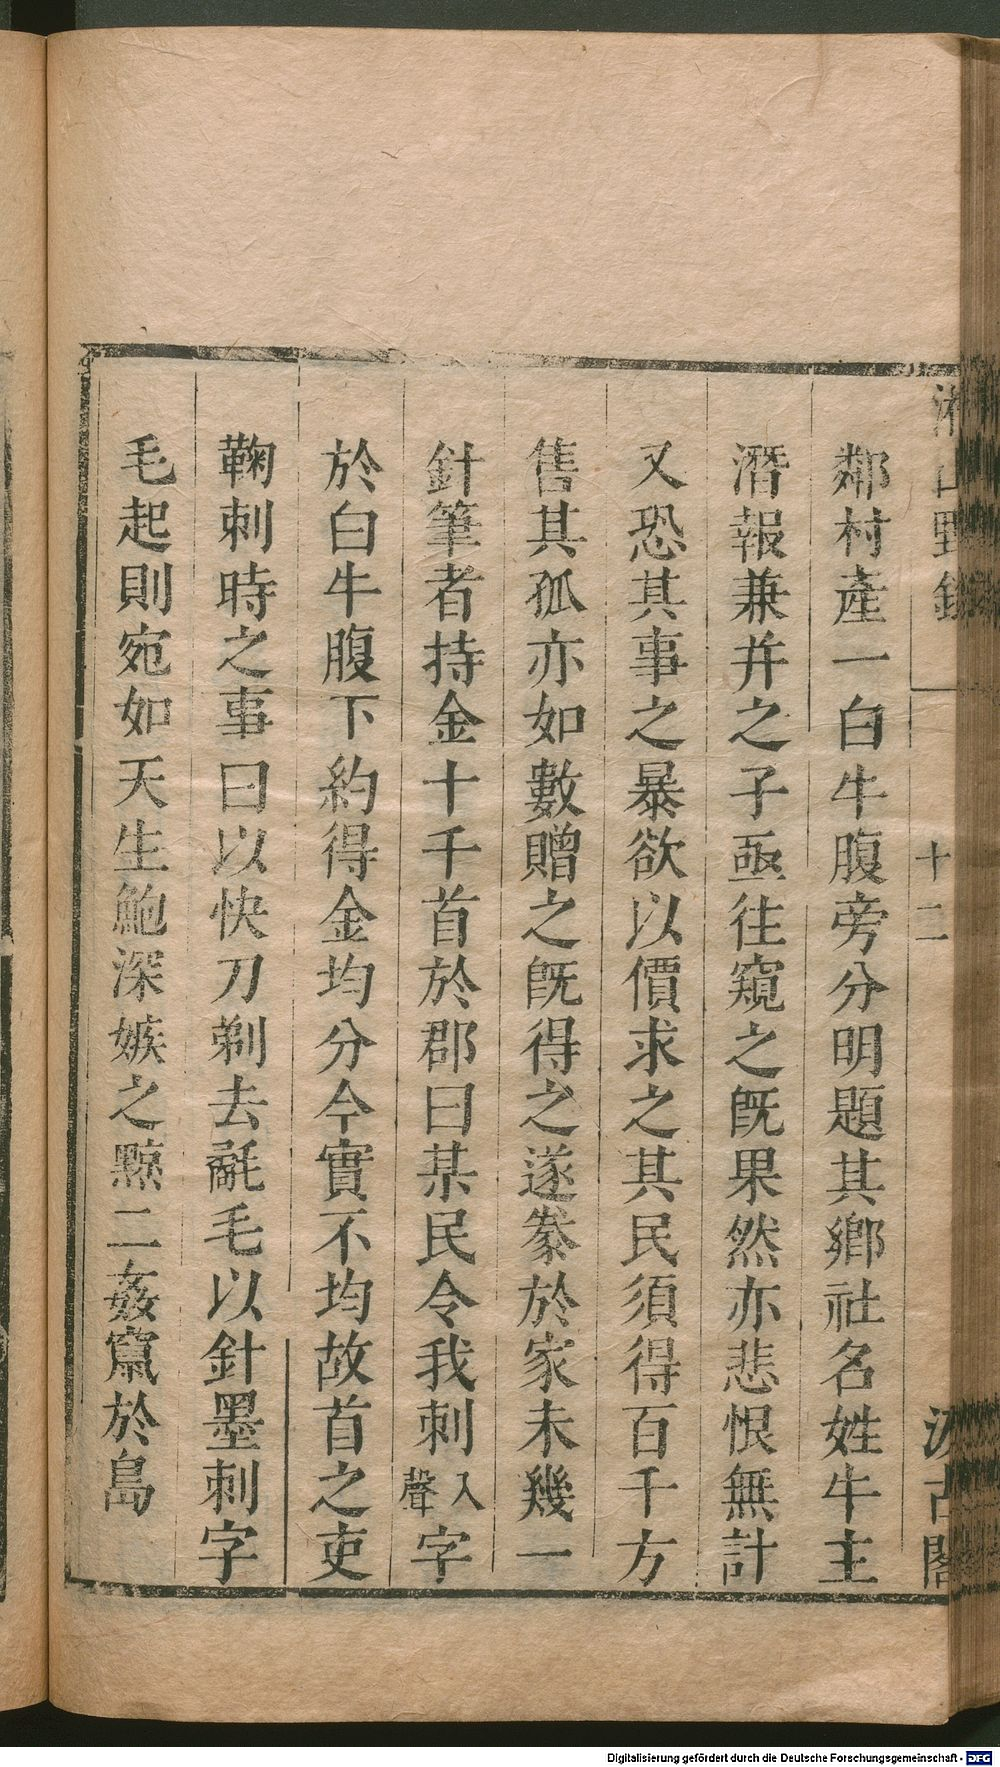 湘山野錄
十二
汲古閣
鄰村產一白牛腹旁分明題其鄉社名姓牛主
潛報兼幷之子亟往窺之旣果然亦悲恨無計
又恐其事之暴欲以價求之其民須得百千方
售其孤亦如數贈之旣得之遂豢於家未幾一
針筆者持金十千首於郡曰某民令我刺入聲字
於白牛腹下約得金均分今實不均故首之吏
鞠刺時之事曰以快刀剃去氄毛以針墨刺字
毛起則宛如天生鮑深嫉之黥二姦竄於島
Digitalisierung gefördert durch die Deutsche Forschungsgemeinschaft - DFG